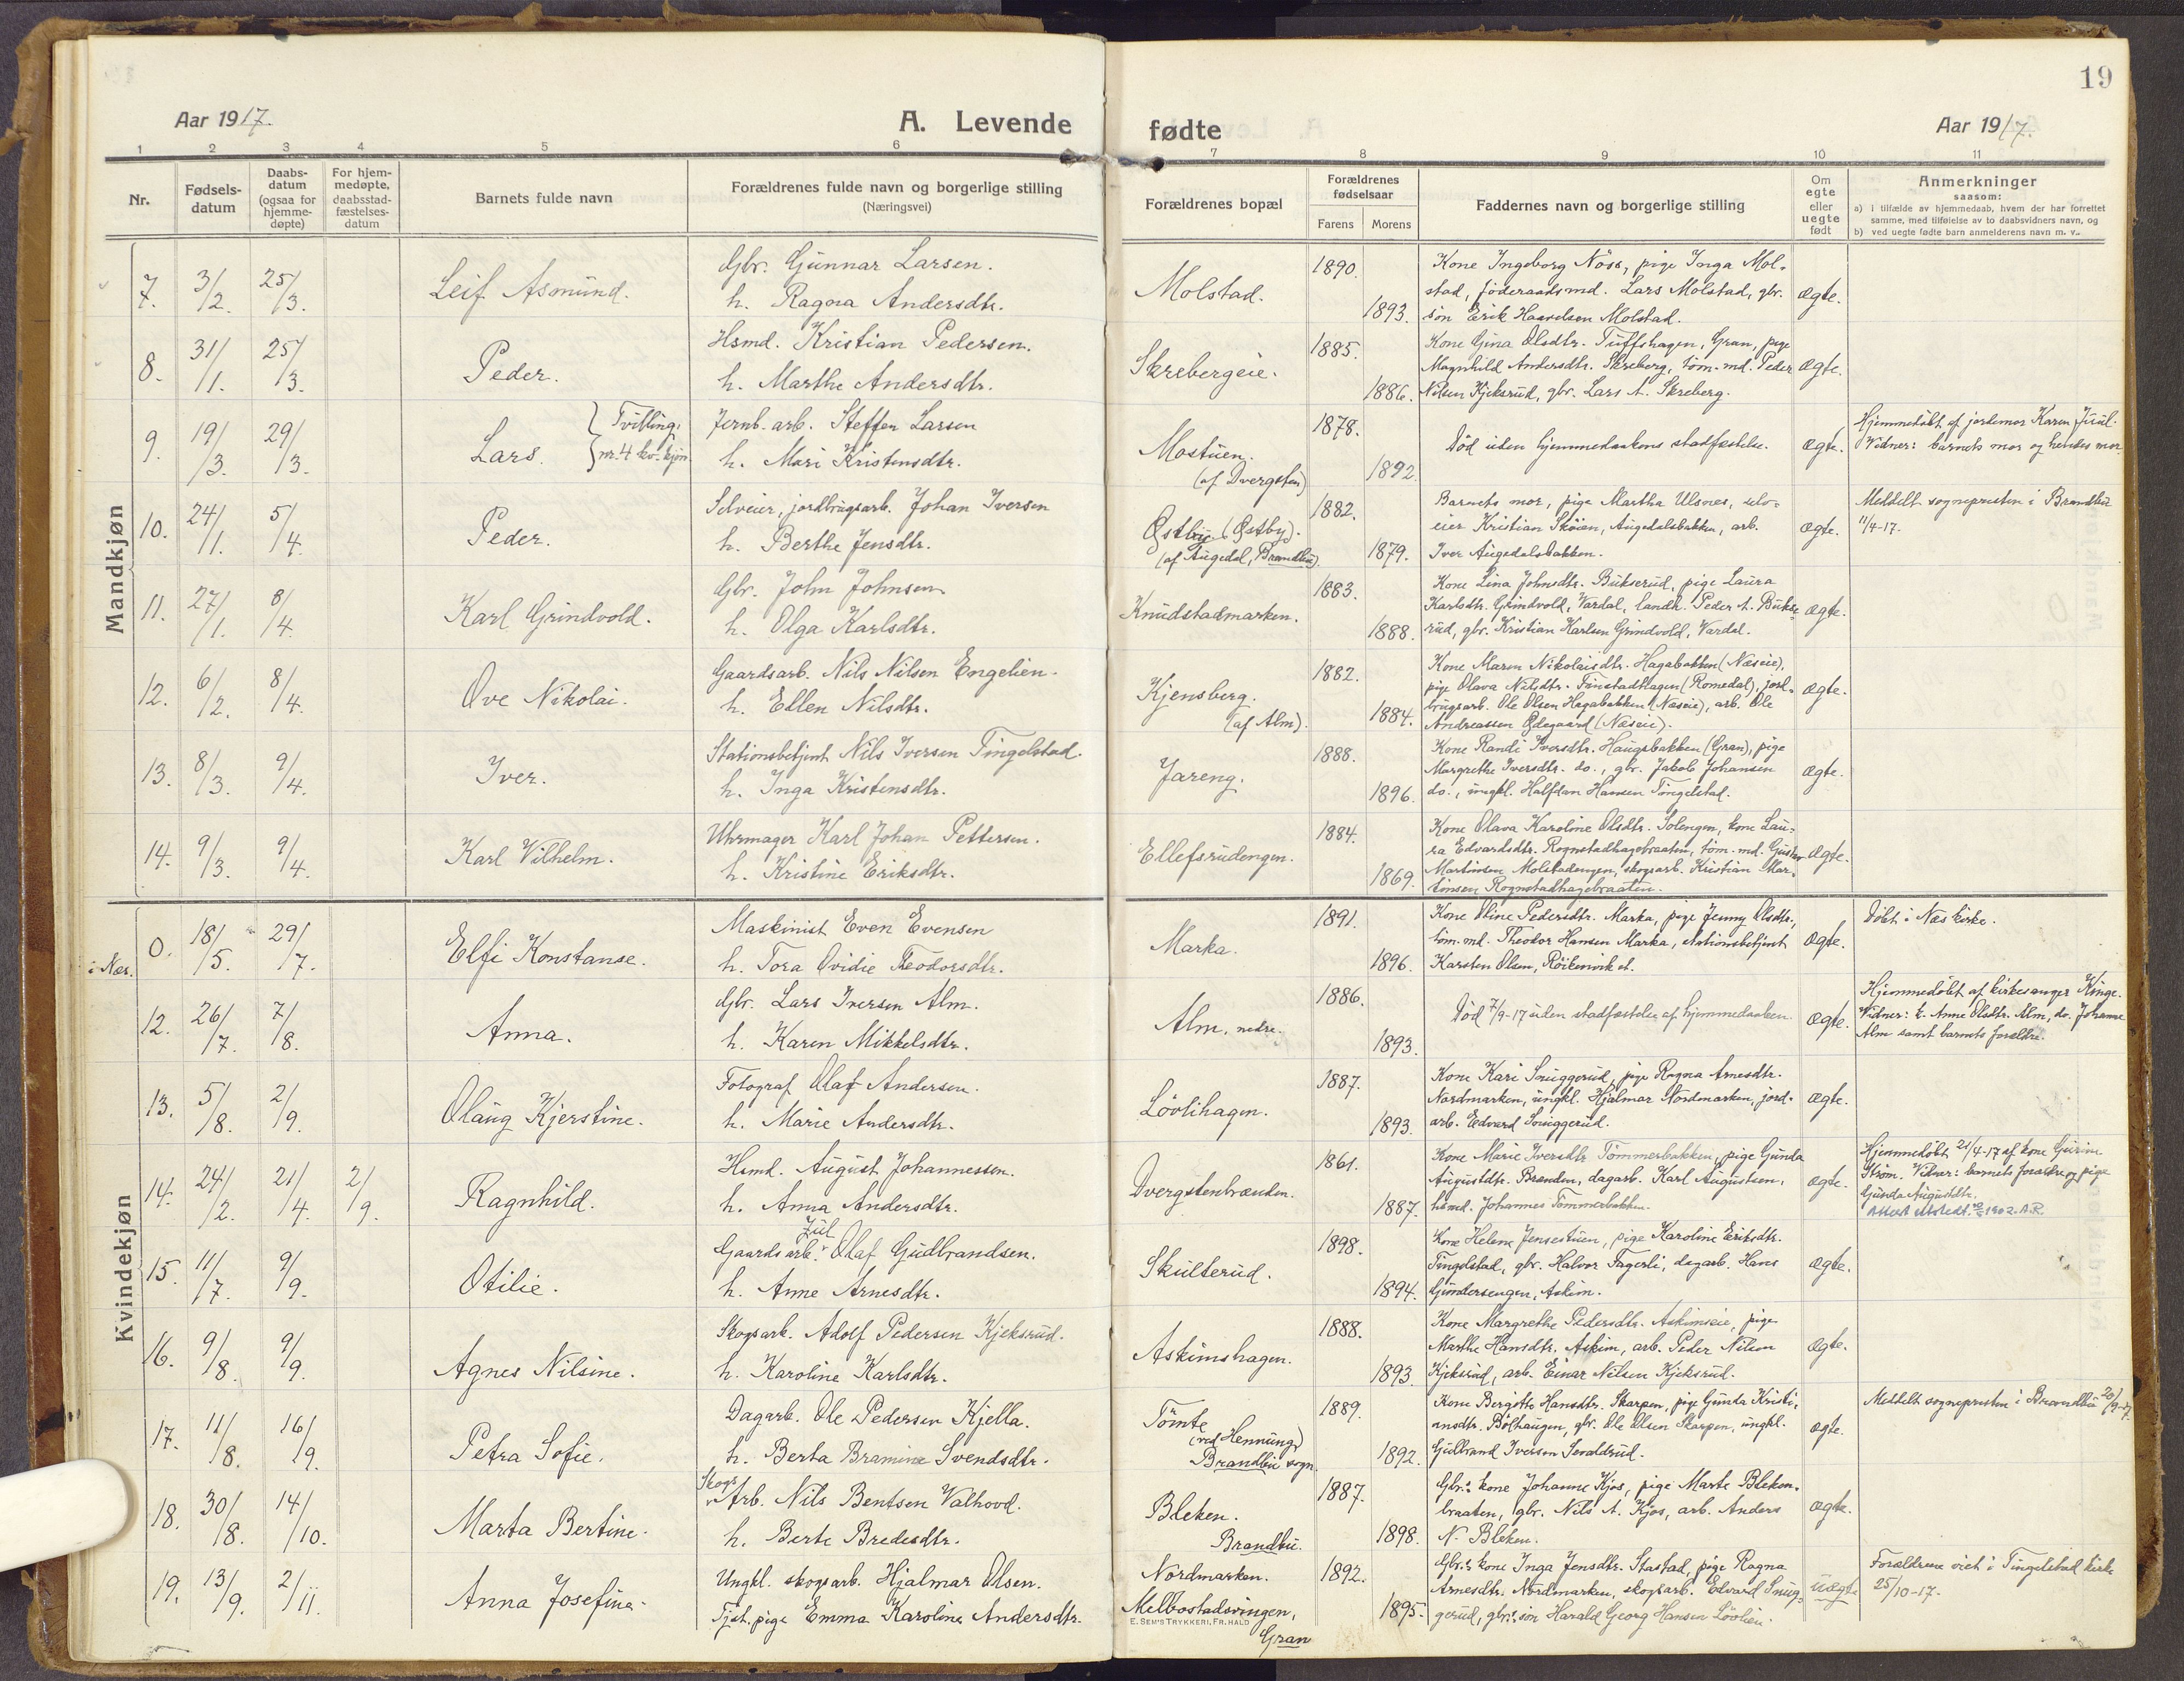 19
Aar 1917.
A. Levende
fødte
Aar 1917.
1 2 3 4 5 6 7 8 9 10 11
Nr.
Fødsels-
datum
Daabs-
datum
(ogsaa for
hjemme-
døpte)
For hjem-
medøpte,
daabsstad-
fæstelses-
datum
Barnets fulde navn
Forældrenes fulde navn og borgerlige stilling
(Næringsvei)
Forældrenes bopæl
Forældrenes
fødselsaar
Farens Morens
Faddernes navn og borgerlige stilling
Om
egte
eller
uegte
født
Anmerkninger
saasom:
a) i tilfælde av hjemmedaab, hvem der har forrettet
samme, med tilføielse av to daabsvidners navn, og
b) ved uegte fødte barn anmelderens navn m. v.
Mandkjøn
7. 3/2. 25/3. Leif Asmund.
Gbr. Gunnar Larsen.
h. Ragna Andersdtr.
Molstad.
1890.
1893.
Kone Ingeborg Næss, pige Inga Mol-
stad, föderaadsmd. Lars Molstad, gbr.
sön Erik Haavelsen Molstad.
ægte.
8. 31/1. 25/3. Peder.
Hsmd. Kristian Pedersen.
h. Marthe Andersdtr.
Skrebergeie.
1885.
1886.
Kone Gina Olsdtr. Tuffshagen, Gran, pige
Magnhild Andersdtr. Skreberg, töm.md. Peder
Nilsen Kjeksrud, gbr. Lars A. Skreberg.
ægte.
9. 19/3. 29/3. Lars.
Tvilling:
nr. 4 kv.kjøn
Jernb.arb. Steffen Larsen
h. Mari Kristensdtr.
Mostuen.
(af Dvergsten)
1878.
1892.
Död uden hjemmedaabens stadfæstelse.
ægte.
Hjemmedöbt af jordemor Karen Juul.
Vidner: barnets mor og hendes mor.
10. 24/1. 5/4. Peder.
Selveier, jordbrugsarb. Johan Iversen
h. Berthe Jensdtr.
Østbye (Østby).
(af Augedal, Brandbu).
1882.
1879.
Barnets mor, pige Martha Ulsnes, selv-
eier Kristian Skøien, Augedalsbakken, arb.
Iver Augedalsbakken.
ægte.
Meddelt sognepresten i Brandbu
11/4-17.
11. 27/1. 8/4. Karl Grindvold.
Gbr. John Johnsen
h. Olga Karlsdtr.
Knudstadmarken.
1883.
1888.
Kone Lina Johnsdtr. Bukserud, pige Laura
Karlsdtr. Grindvold, Vardal, landh. Peder A. Bukse-
rud, gbr. Kristian Karlsen Grindvold, Vardal.
ægte.
12. 6/2. 8/4. Ove Nikolai.
Gaardsarb. Nils Nilsen Engelien.
h. Ellen Nilsdtr.
Kjensberg.
(af Alm).
1882.
1884.
Kone Maren Nikolaisdtr. Hagabakken (Næseie),
pige Olava Nilsdtr. Finstadhagen (Romedal), jord-
brugsarb. Ole Olsen Hagabakken (Næseie), arb. Ole
Andreassen Ødegaard (Næseie).
ægte.
13. 8/3. 9/4. Iver.
Stationsbetjent Nils Iversen Tingelstad.
h. Inga Kristensdtr.
Jareng.
1888.
1896.
Kone Randi Iversdtr. Haugsbakken (Gran), pige
Margrethe Iversdtr. do., gbr. Jakob Johansen
do., ungkl. Halfdan Hansen Tingelstad.
ægte.
14. 9/3. 9/4. Karl Vilhelm.
Uhrmager Karl Johan Pettersen.
h. Kristine Eriksdtr.
Ellefsrudengen.
1884.
1869.
Kone Olava Karoline Olsdtr. Solengen, kone Lau-
ra Edvardsdtr. Rognstadhagebraaten, töm.md. Gustav
Martinsen Molstadengen, skogsarb. Kristian Mar-
tinsen Rognstadhagebraaten.
ægte.
Kvindekjøn
i Næs.
0. 18/5. 29/7. Elfi Konstanse.
Maskinist Even Evensen
h. Tora Ovidie Teodorsdtr.
Marka.
1891.
1896.
Kone Oline Pedersdtr. Marka, pige Jenny Olsdtr.,
töm.md. Theodor Hansen Marka, stationsbetjent
Karsten Olsen, Röikenvik st.
ægte.
Döbt i Næs kirke.
12. 26/7. 7/8. Anna.
Gbr. Lars Iversen Alm.
h. Karen Mikkelsdtr.
Alm, nedre.
1886.
1893.
Död 7/9-17 uden stadfæstelse af hjemmedaaben.
ægte.
Hjemmedöbt af kirkesanger Kinge.
Vidner: k. Anne Olsdtr. Alm, do. Johanne
Alm samt barnets forældre.
13. 5/8. 2/9. Olaug Kjerstine.
Fotograf Olaf Andersen.
h. Marie Andersdtr.
Lövlihagen.
1887.
1893.
Kone Kari Snuggerud, pige Ragna Arnesdtr.
Nordmarken, ungkl. Hjalmar Nordmarken, jord-
arb. Edvard Snuggerud.
ægte.
14. 24/2. 21/4. 2/9. Ragnhild.
Hsmd. August Johannessen.
h. Anna Andersdtr.
Dvergstenbrænden.
1861.
1887.
Kone Marie Iversdtr. Tömmerbakken, pige Gunda
Augustdtr. Brænden, dagarb. Karl Augustsen,
hsmd. Johannes Tömmerbakken.
ægte.
Hjemmedöbt 21/4-17 af kone Gurine
Ström. Vidner: barnets forældre og pige
Gunda Augustdtr.
15. 11/7. 9/9. Otilie.
Gaardsarb. Jul Olaf Gudbrandsen.
h. Anne Arnesdtr.
Skulterud.
1898.
1894.
Kone Helene Jensestuen, pige Karoline Eriksdtr.
Tingelstad, gbr. Halvor Fagerli, dagarb. Hans
Gundersengen, Askim.
ægte.
16. 9/8. 9/9. Agnes Nilsine.
Skogsarb. Adolf Pedersen Kjeksrud.
h. Karoline Karlsdtr.
Askimshagen.
1888.
1893.
Kone Margrethe Pedersdtr. Askimseie, pige
Marthe Hansdtr. Askim, arb. Peder Nilsen
Kjeksrud, arb. Einar Nilsen Kjeksrud.
ægte.
17. 11/8. 16/9. Petra Sofie.
Dagarb. Ole Pedersen Kjella.
h. Berta Bramine Svendsdtr.
Tömte
(ved Hennung)
Brandbu sogn
1889.
1892.
Kone Bergitte Hansdtr. Skarpen, pige Gunda Kristi-
ansdtr. Bölhaugen, gbr. Ole Olsen Skarpen, ungkl.
Gulbrand Iversen
ægte.
Meddelt sognepresten i Brandbu 20/9-17.
18. 30/8. 14/10. Marta Bertine.
Skogs Arb. Nils Bentsen Valhovd.
h. Berte Bredesdtr.
Bleken.
Brandbu.
1887.
1898.
Gbr.s kone Johanne Kjos, pige Marte Bleken-
braaten, gbr. Nils A. Kjos, arb. Anders
N. Bleken.
ægte.
19. 13/9. 2/11. Anna Josefine.
Ungkl. skogsarb. Hjalmar Olsen.
Tjst.pige Emma Karoline Andersdtr.
Nordmarken.
Melbostadsvingen,
Gran
1892.
1895.
Gbr.s kone Inga Jensdtr. Stastad, pige Ragna
Arnesdtr. Nordmarken, skogsarb. Edvard Snug-
gerud, gbr.s sön Harald Georg Hansen Lövlien.
uægte
Forældrene viet i Tingelstad kirke
25/10-17.
E. SEM'S TRYKKERI, FR.HALD